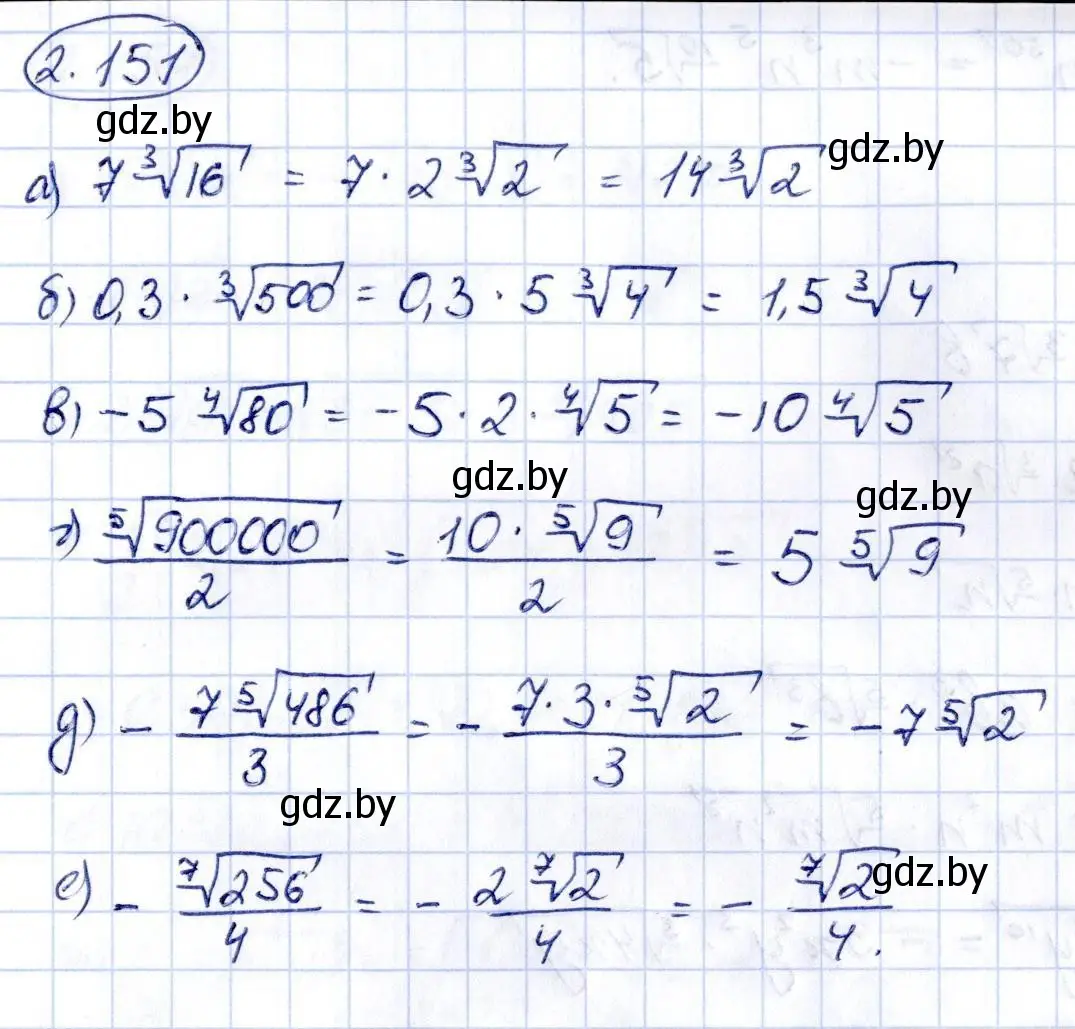 2.151
gdz.by
а) 7∛16 = 7 · 2∛2 = 14∛2
gdz.by
б) 0,3 · ∛500 = 0,3 · 5∛4 = 1,5∛4
в) -5∜80 = -5 · 2 · ∜5 = -10∜5
gdz.by
gdz.by
г) ⁵√900000 / 2 = 10 · ⁵√9 / 2 = 5 ⁵√9
д) - 7 ⁵√486 / 3 = - 7 · 3 · ⁵√2 / 3 = -7 ⁵√2
gdz.by
е) - ⁷√256 / 4 = - 2 ⁷√2 / 4 = - ⁷√2 / 4.
gdz.by